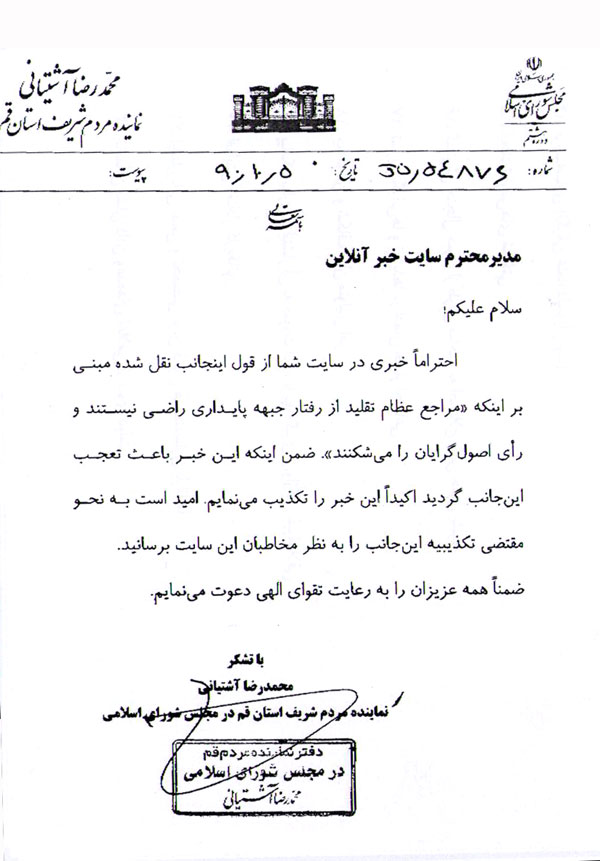 جمهوری اسلامی ایران
مجلس شورای اسلامی
دوره هشتم
محمدرضا آشتیانی
نماینده مردم شریف استان قم
شماره:
تاریخ: ۹۰/۱۰/۵
پیوست:
باسمه تعالی
مدیر محترم سایت خبر آنلاین
سلام علیکم؛
احتراماً خبری در سایت شما از قول اینجانب نقل شده مبنی
بر اینکه «مراجع عظام تقلید از رفتار جبهه پایداری راضی نیستند و
رأی اصول‌گرایان را می‌شکنند». ضمن اینکه این خبر باعث تعجب
این‌جانب گردید اکیداً این خبر را تکذیب می‌نمایم. امید است به نحو
مقتضی تکذیبیه این‌جانب را به نظر مخاطبان این سایت برسانید.
ضمناً همه عزیزان را به رعایت تقوای الهی دعوت می‌نمایم.
با تشکر
محمدرضا آشتیانی
نماینده مردم شریف استان قم در مجلس شورای اسلامی
دفتر نماینده مردم قم
در مجلس شورای اسلامی
محمدرضا آشتیانی